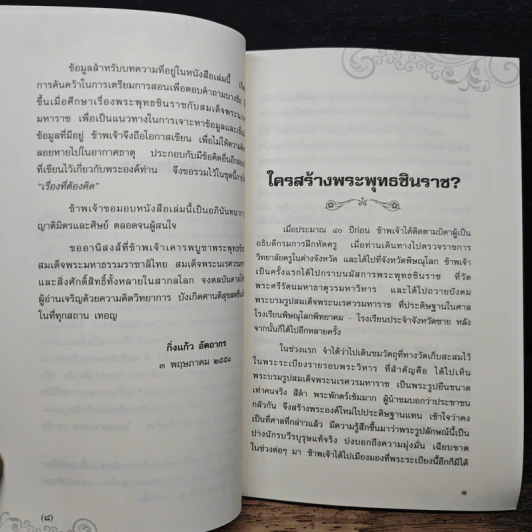 ข้อมูลสำหรับบทความที่อยู่ในหนังสือเล่มนี้
การค้นคว้าในการเตรียมการสอนเพื่อตอบคำถามบางข้อ
ขึ้นเมื่อศึกษาเรื่องพระพุทธชินราชกับสมเด็จพระนเร
มหาราช เพื่อเป็นแนวทางในการเจาะหาข้อมูลและเรีย
ข้อมูลที่มีอยู่ ข้าพเจ้าจึงถือโอกาสเขียน เพื่อไม่ให้ความ
ลอยหายไปในอากาศธาตุ ประกอบกับมีข้อคิดอื่นอีก
ที่เขียนไว้เกี่ยวกับพระองค์ท่าน จึงขอรวมไว้ในชุดนี้
“เรื่องที่ต้องคิด”
ข้าพเจ้าขอมอบหนังสือเล่มนี้เป็นอภินันทนา
ญาติมิตรและศิษย์ ตลอดจนผู้สนใจ
ขออานิสงส์ที่ข้าพเจ้าเคารพบูชาพระพุทธชิน
สมเด็จพระมหาธรรมราชาลิไทย สมเด็จพระนเรศวร
และสิ่งศักดิ์สิทธิ์ทั้งหลายในสากลโลก จงดลบันดาล
ผู้อ่านเจริญด้วยความคิดวิทยาการ บังเกิดศานติสุข
ในที่ทุกสถาน เทอญ
กิ่งแก้ว อัตถากร
๓ พฤษภาคม ๒๕๕๑
(๘)
ใครสร้างพระพุทธชินราช?
เมื่อประมาณ ๔๐ ปีก่อน ข้าพเจ้าได้ติดตามบิดาผู้เป็น
อธิบดีกรมการฝึกหัดครู เมื่อท่านเดินทางไปตรวจราชการ
วิทยาลัยครูในต่างจังหวัด และได้ไปที่จังหวัดพิษณุโลก ข้าพเจ้า
เป็นครั้งแรกได้ไปกราบนมัสการพระพุทธชินราช ที่วัด
พระศรีรัตนมหาธาตุวรมหาวิหาร และได้ไปถวายบังคม
พระบรมรูปสมเด็จพระนเรศวรมหาราช ที่ประดิษฐานในศาล
โรงเรียนพิษณุโลกพิทยาคม - โรงเรียนประจำจังหวัดชาย หลัง
จากนั้นก็ได้ไปอีกหลายครั้ง
ในช่วงแรก จำได้ว่าไปเดินชมวัตถุที่ทางวัดเก็บสะสมไว้
ในพระระเบียงรายรอบพระวิหาร ที่สำคัญคือ ได้ไปเห็น
พระบรมรูปสมเด็จพระนเรศวรมหาราช เป็นพระรูปยืนขนาด
เท่าคนจริง สีดำ พระพักตร์เข้มมาก ผู้นำชมบอกว่าประชาชน
กลัวกัน จึงสร้างพระองค์ใหม่ไปประดิษฐานแทน เข้าใจว่าคง
เป็นที่ศาลที่กล่าวแล้ว มีความรู้สึกขึ้นมาว่าพระรูปลักษณ์นี้เป็น
ปางนักรบวีรบุรุษแท้จริง บ่งบอกถึงความมุ่งมั่น เฉียบขาด
ในช่วงต่อๆ มา ข้าพเจ้าได้ไปเมียงมองที่พระระเบียงนี้อีกก็มิได้
๑